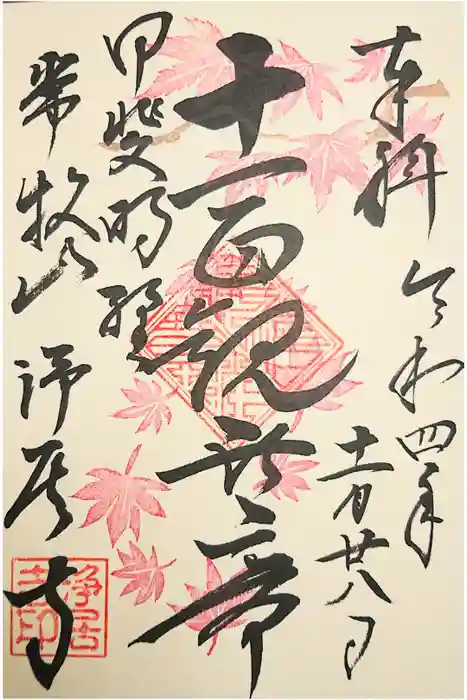 奉拝 令和四年
十一月廿八日
十一面観世音
常牧山 浄居寺
浄居寺印